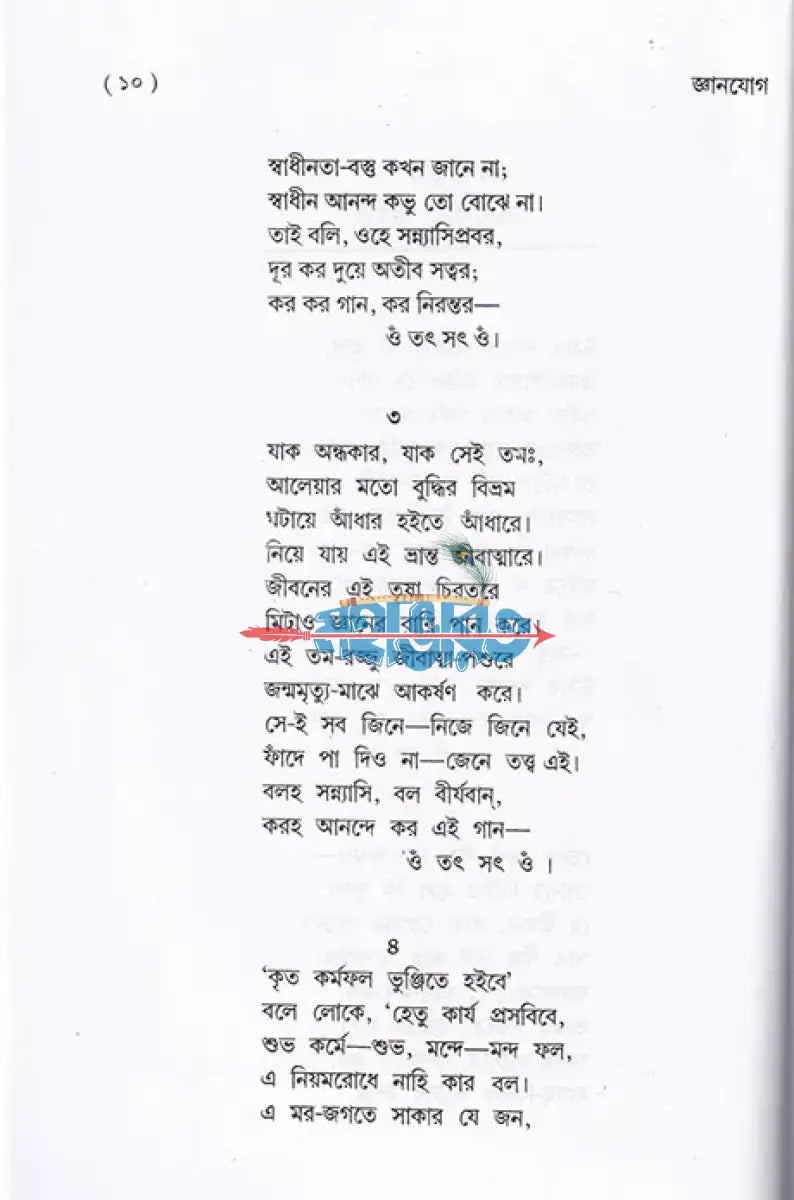 ( ১০ )
জ্ঞানযোগ
স্বাধীনতা-বস্তু কখন জানে না;
স্বাধীন আনন্দ কভু তো বোঝে না।
তাই বলি, ওহে সন্ন্যাসিপ্রবর,
দূর কর দুয়ে অতীব সত্বর;
কর কর গান, কর নিরন্তর—
ওঁ তৎ সৎ ওঁ।
৩
যাক অন্ধকার, যাক সেই তমঃ,
আলেয়ার মতো বুদ্ধির বিভ্রম
ঘটায়ে আঁধার হইতে আঁধারে।
নিয়ে যায় এই ভ্রান্ত জীবাত্মারে।
জীবনের এই তৃষা চিরতরে
মিটাও জ্ঞানের বারি পান করে।
মহাভারত
এই তম-রজ্জু জীবাত্মা-পশুরে
জন্মমৃত্যু-মাঝে আকর্ষণ করে।
সে-ই সব জিনে—নিজে জিনে যেই,
ফাঁদে পা দিও না—জেনে তত্ত্ব এই।
বলহ সন্ন্যাসি, বল বীর্যবান্,
করহ আনন্দে কর এই গান—
ওঁ তৎ সৎ ওঁ ।
৪
‘কৃত কর্মফল ভুঞ্জিতে হইবে’
বলে লোকে, ‘হেতু কার্য প্রসবিবে,
শুভ কর্মে—শুভ, মন্দে—মন্দ ফল,
এ নিয়মরোধে নাহি কার বল।
এ মর-জগতে সাকার যে জন,